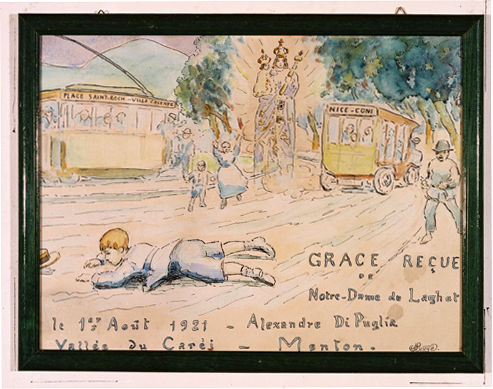 PLACE SAINT-ROCH - VILLA
NICE-CONI
GRACE REÇUE
DE
Notre-Dame de Laghet
le 1er Août 1921 - Alexandre Di Puglia
Vallée du Careï - Menton.